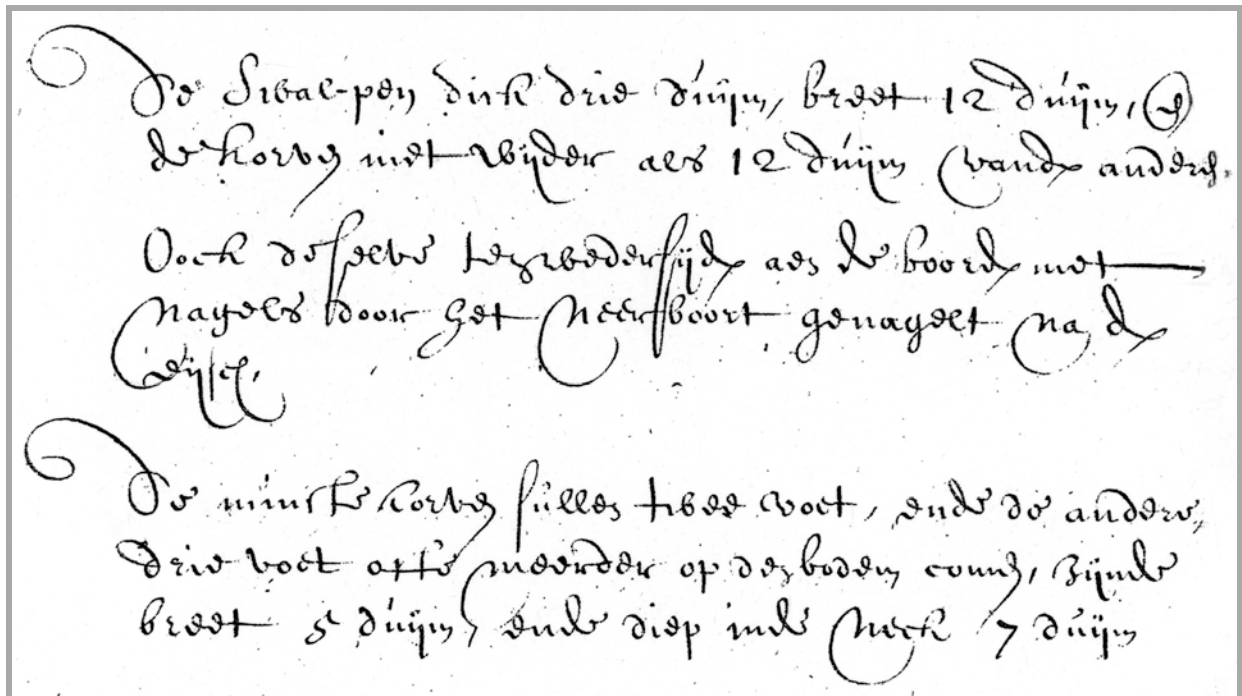 De Swalpen dick drie duijm, breet 12 duijm, en
de korven niet wijder als 12 duijm vande anderen.
Oock deselve tenwedersijden aen de boorden met
Nagels door het Neerboort genagelt Na den
Eijsch.
De minste korven sullen twee voet, ende de andere,
drie voet ofte meerder op den bodem comen, zijnde
breet 5 duijm, ende diep inde Neck 7 duijm